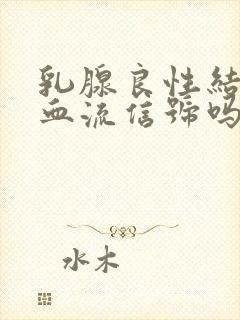 乳腺良性結
血流信號嗎
水木